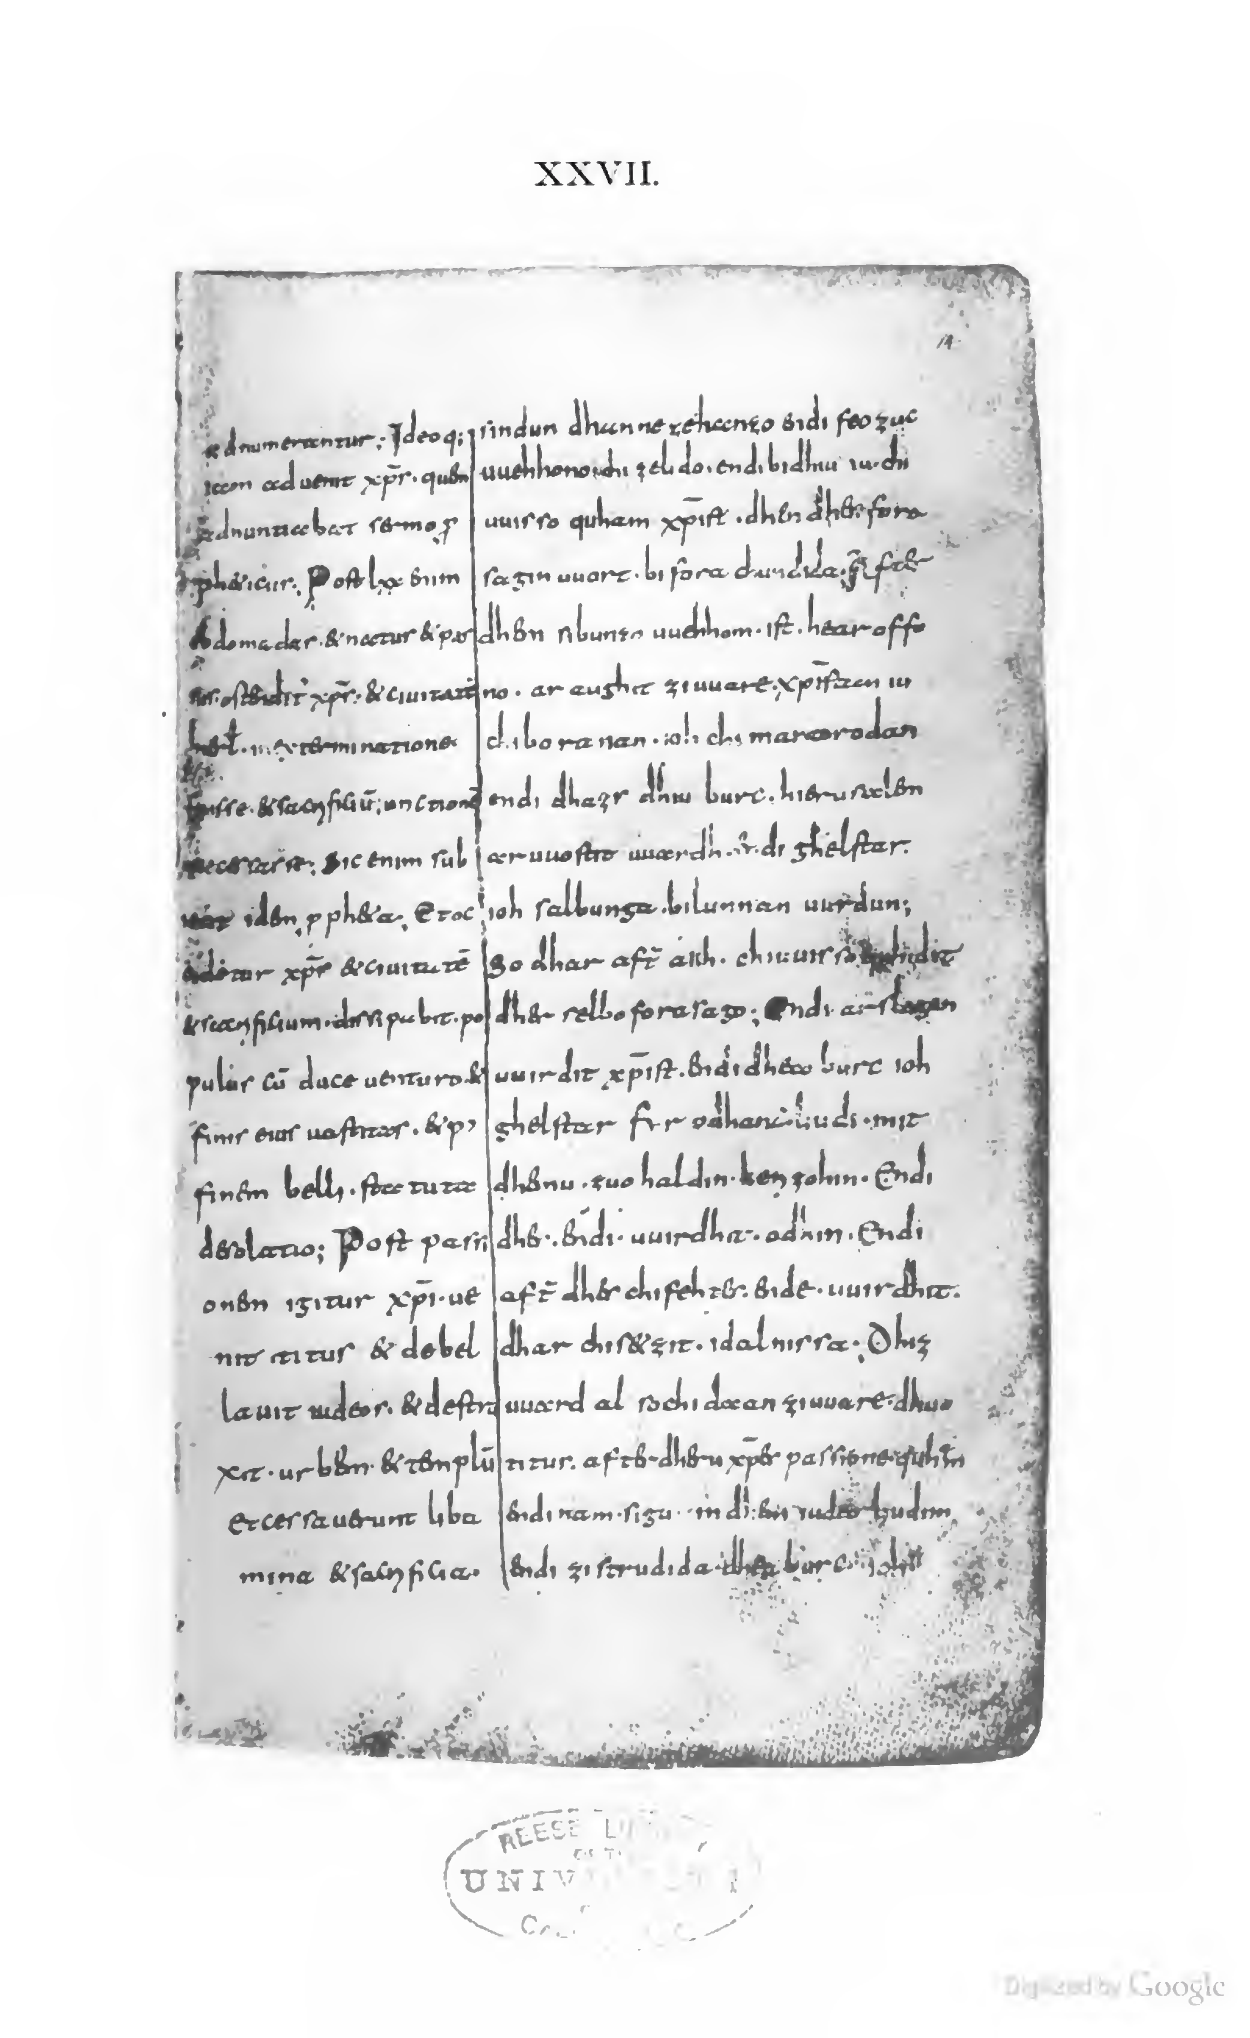 XXVII.
14
adnumerantur; Ideoq;
iam aduenit xp̄s. quem
adnuntiabat sermo ꝓ
pheticus; Post lxx enim
ebdomadas. & natus & pas
sus. ostenditur xp̄s. & ciuitas
hierl. in exterminatione
fuisse. & sacrificiū; unctionē
cessasse; Sic enim sub
idem ꝓpheta; Et oc
cidetur xp̄s & ciuitatē
& sacrificium. dissipabit. po
pulus cū duce uenturo. &
finis eius uastitas. & p'
finem belli. statuta
desolatio; Post passi
onem igitur xp̄i. ue
nit titus & debel
lauit iudeos. & destru
xit. urbem. & templū
et cessauerunt liba
mina & sacrificia.
sindun dhanne zehanzo endi feozuc
uuehhono. chizelido. endi bidhiu iu. chi
uuisso quham xp̄ist. dhen dher fora
sagin uuort. bifora
dhem sibunzo uuehhom. ist. hear offo
no. araughit ziuuare. xp̄istan iu
chiboranan. ioh chimartorodan
endi dhazs dhiu burc. hierusalem
aruuostit uuardh. endi ghelstar.
ioh salbunga. bilunnan uurdun;
So dhar aft̄ auh. chiuuisso quhidit
dher selbo forasago; Endi arslagan
uuirdit xp̄ist. endi dhea burc ioh
ghelstar fer odhant. liudi. mit
dhemu. zuohaldin. herizohin. Endi
dher. endi. uuirdhit. odhin. Endi
aft̄ dhes chifehtes. ende. uuirdhit.
dhar chisezzit. idalnissa; Dhiz
uuard al so chidaan ziuuare. dhuo
titus. after dheru xp̄es passione. quham
endi nam. sigu. in dhem iudeo liudim
endi zistrudida dhea burc. ioh
Digitized by Google